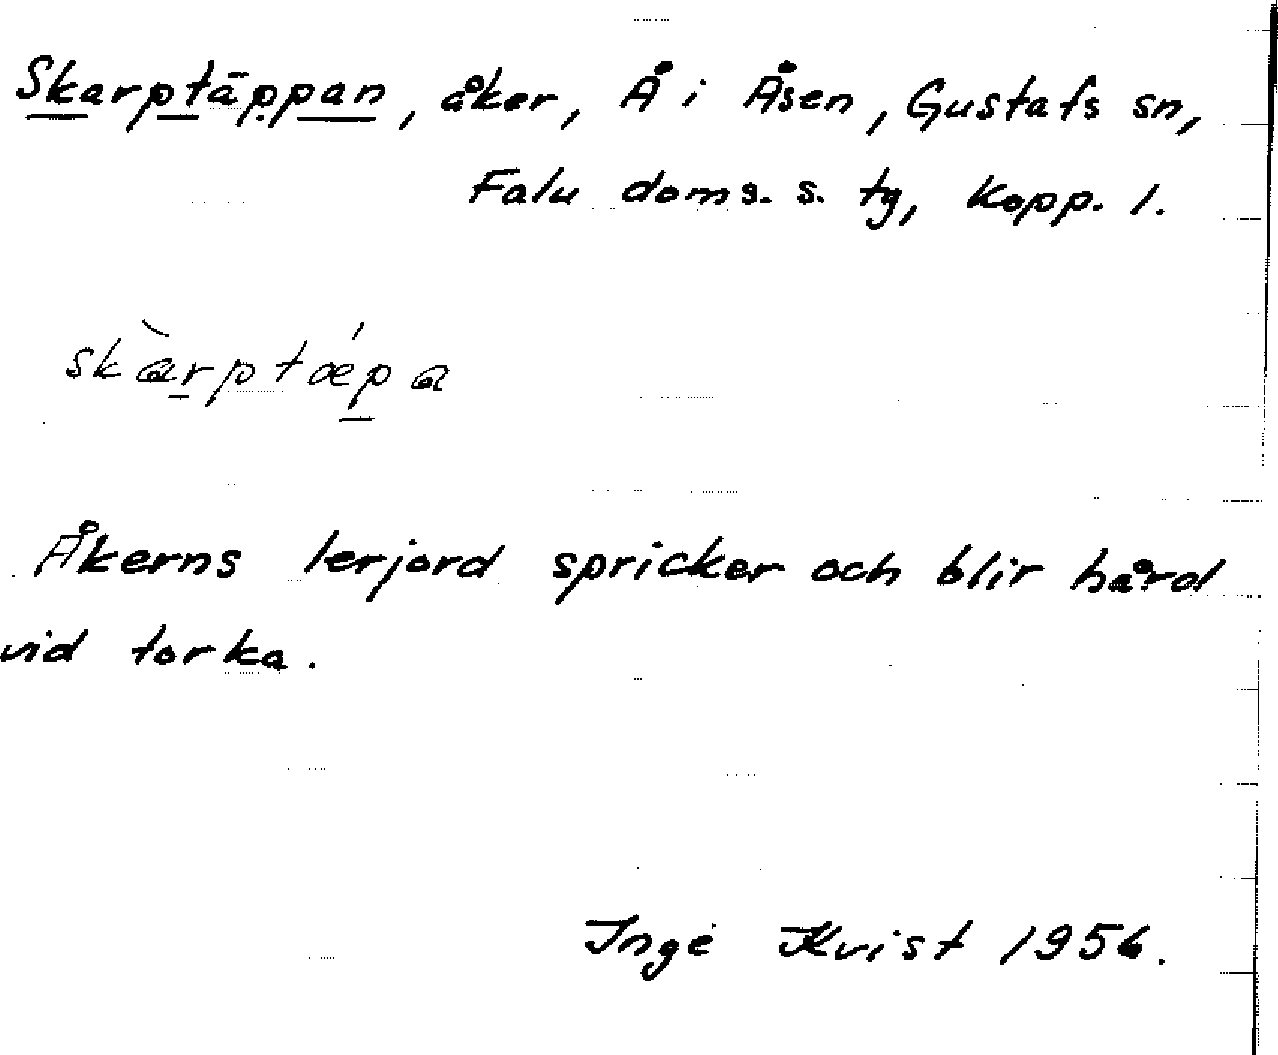 Skarptäppan, åker, Å i Åsen, Gustafs sn,
Falu doms. s. tg, Kopp. l.
skàrptǽpa
Åkerns lerjord spricker och blir hård
vid torka.
Inge Kvist 1956.